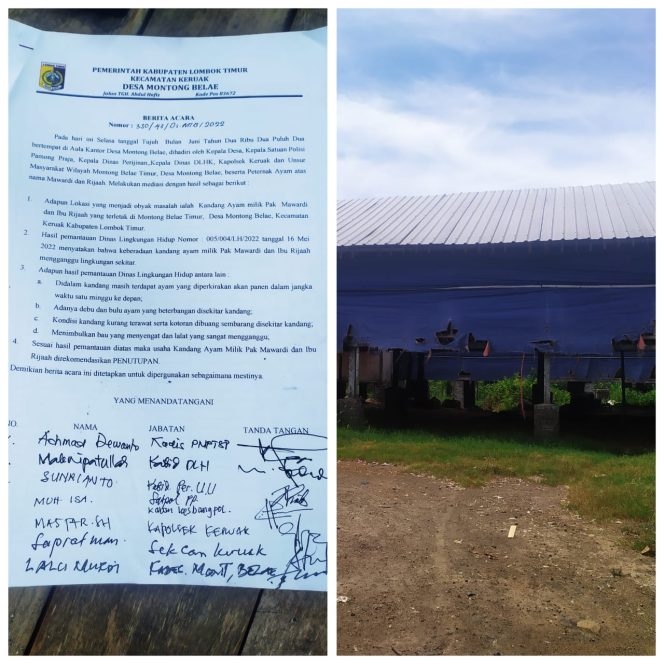 PEMERINTAH KABUPATEN LOMBOK TIMUR
KECAMATAN KERUAK
DESA MONTONG BELAE
Jalan TGH. Abdul Hafiz Kode Pos 83672
BERITA ACARA
Nomor :
Pada hari ini Selasa tanggal Tujuh Bulan Juni Tahun Dua Ribu Dua Puluh Dua
bertempat di Aula Kantor Desa Montong Belae, dihadiri oleh Kepala Desa, Kepala Satuan Polisi
Pamong Praja, Kepala Dinas Perijinan, Kepala Dinas DLHK, Kapolsek Keruak dan Unsur
Masyarakat Wilayah Montong Belae Timur, Desa Montong Belae, beserta Peternak Ayam atas
nama Mawardi dan Rijaah. Melakukan mediasi dengan hasil sebagai berikut :
1. Adapun Lokasi yang menjadi obyek masalah ialah Kandang Ayam milik Pak Mawardi
dan Ibu Rijaah yang terletak di Montong Belae Timur, Desa Montong Belae, Kecamatan
Keruak Kabupaten Lombok Timur.
2. Hasil pemantauan Dinas Lingkungan Hidup Nomor : 005/004/LH/2022 tanggal 16 Mei
2022 menyatakan bahwa keberadaan kandang ayam milik Pak Mawardi dan Ibu Rijaah
mengganggu lingkungan sekitar.
3. Adapun hasil pemantauan Dinas Lingkungan Hidup antara lain :
a. Didalam kandang masih terdapat ayam yang diperkirakan akan panen dalam jangka
waktu satu minggu ke depan;
b. Adanya debu dan bulu ayam yang beterbangan disekitar kandang;
c. Kondisi kandang kurang terawat serta kotoran dibuang sembarang disekitar kandang;
d. Menimbulkan bau yang menyengat dan lalat yang sangat mengganggu;
4. Sesuai hasil pemantauan diatas maka usaha Kandang Ayam Milik Pak Mawardi dan Ibu
Rijaah direkomendasikan PENUTUPAN.
Demikian berita acara ini ditetapkan untuk dipergunakan sebagaimana mestinya.
YANG MENANDATANGANI
NO. NAMA JABATAN TANDA TANGAN
Achmad Dewanto Kadis PMPTSP
DLH
SUNRIANTO
MUH ISA. Satpol PP.
MASTAR. SH KAPOLSEK KERUAK
Sapratman. Sekcam Keruak
LALU KADES. MONT, BELAE